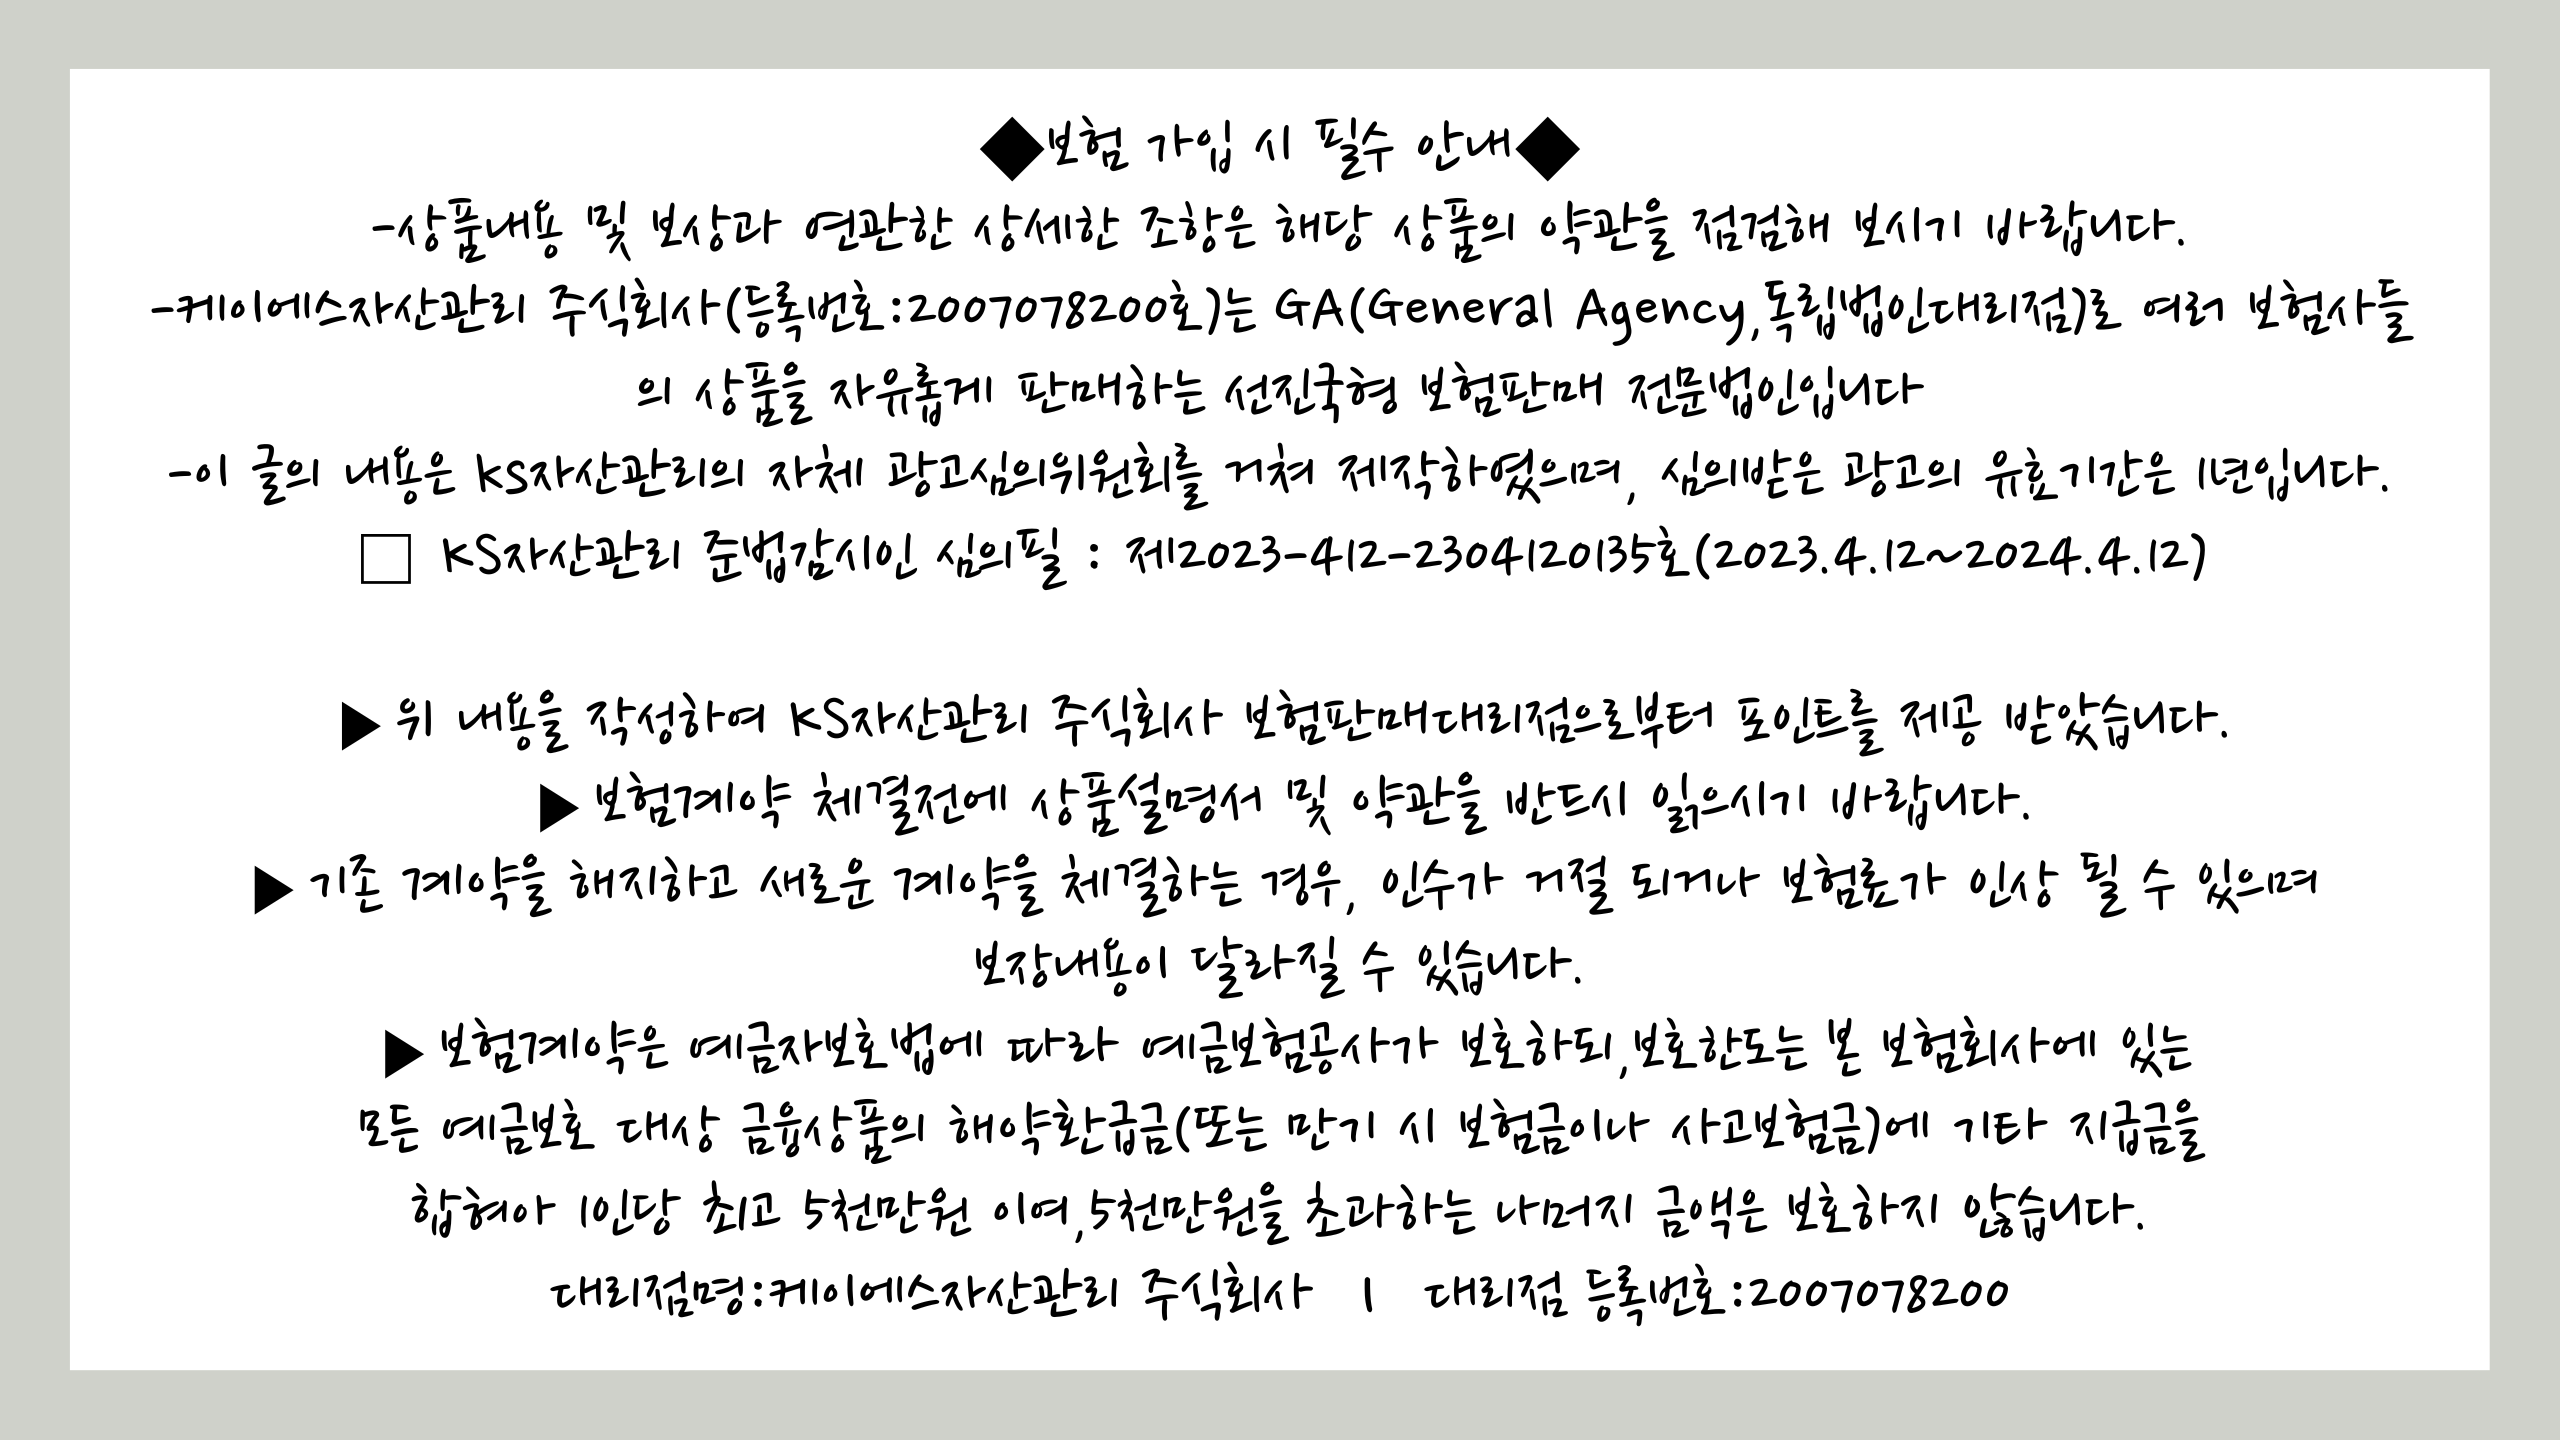 ◆보험 가입 시 필수 안내◆
-상품내용 및 보상과 연관한 상세한 조항은 해당 상품의 약관을 점검해 보시기 바랍니다.
-케이에스자산관리 주식회사(등록번호:2007078200호)는 GA(General Agency,독립법인대리점)로 여러 보험사들
의 상품을 자유롭게 판매하는 선진국형 보험판매 전문법인입니다
-이 글의 내용은 KS자산관리의 자체 광고심의위원회를 거쳐 제작하였으며, 심의받은 광고의 유효기간은 1년입니다.
□ KS자산관리 준법감시인 심의필 : 제2023-412-2304120135호(2023.4.12~2024.4.12)
▶위 내용을 작성하여 KS자산관리 주식회사 보험판매대리점으로부터 포인트를 제공 받았습니다.
▶보험계약 체결전에 상품설명서 및 약관을 반드시 읽으시기 바랍니다.
▶기존 계약을 해지하고 새로운 계약을 체결하는 경우, 인수가 거절 되거나 보험료가 인상 필 수 있으며
보장내용이 달라질 수 있습니다.
▶보험계약은 예금자보호법에 따라 예금보험공사가 보호하되,보호한도는 본 보험회사에 있는
모든 예금보호 대상 금융상품의 해약환급금(또는 만기 시 보험금이나 사고보험금)에 기타 지급금을
합혀아 1인당 최고 5천만원 이여,5천만원을 초과하는 나머지 금액은 보호하지 않습니다.
대리점명:케이에스자산관리 주식회사 | 대리점 등록번호:2007078200